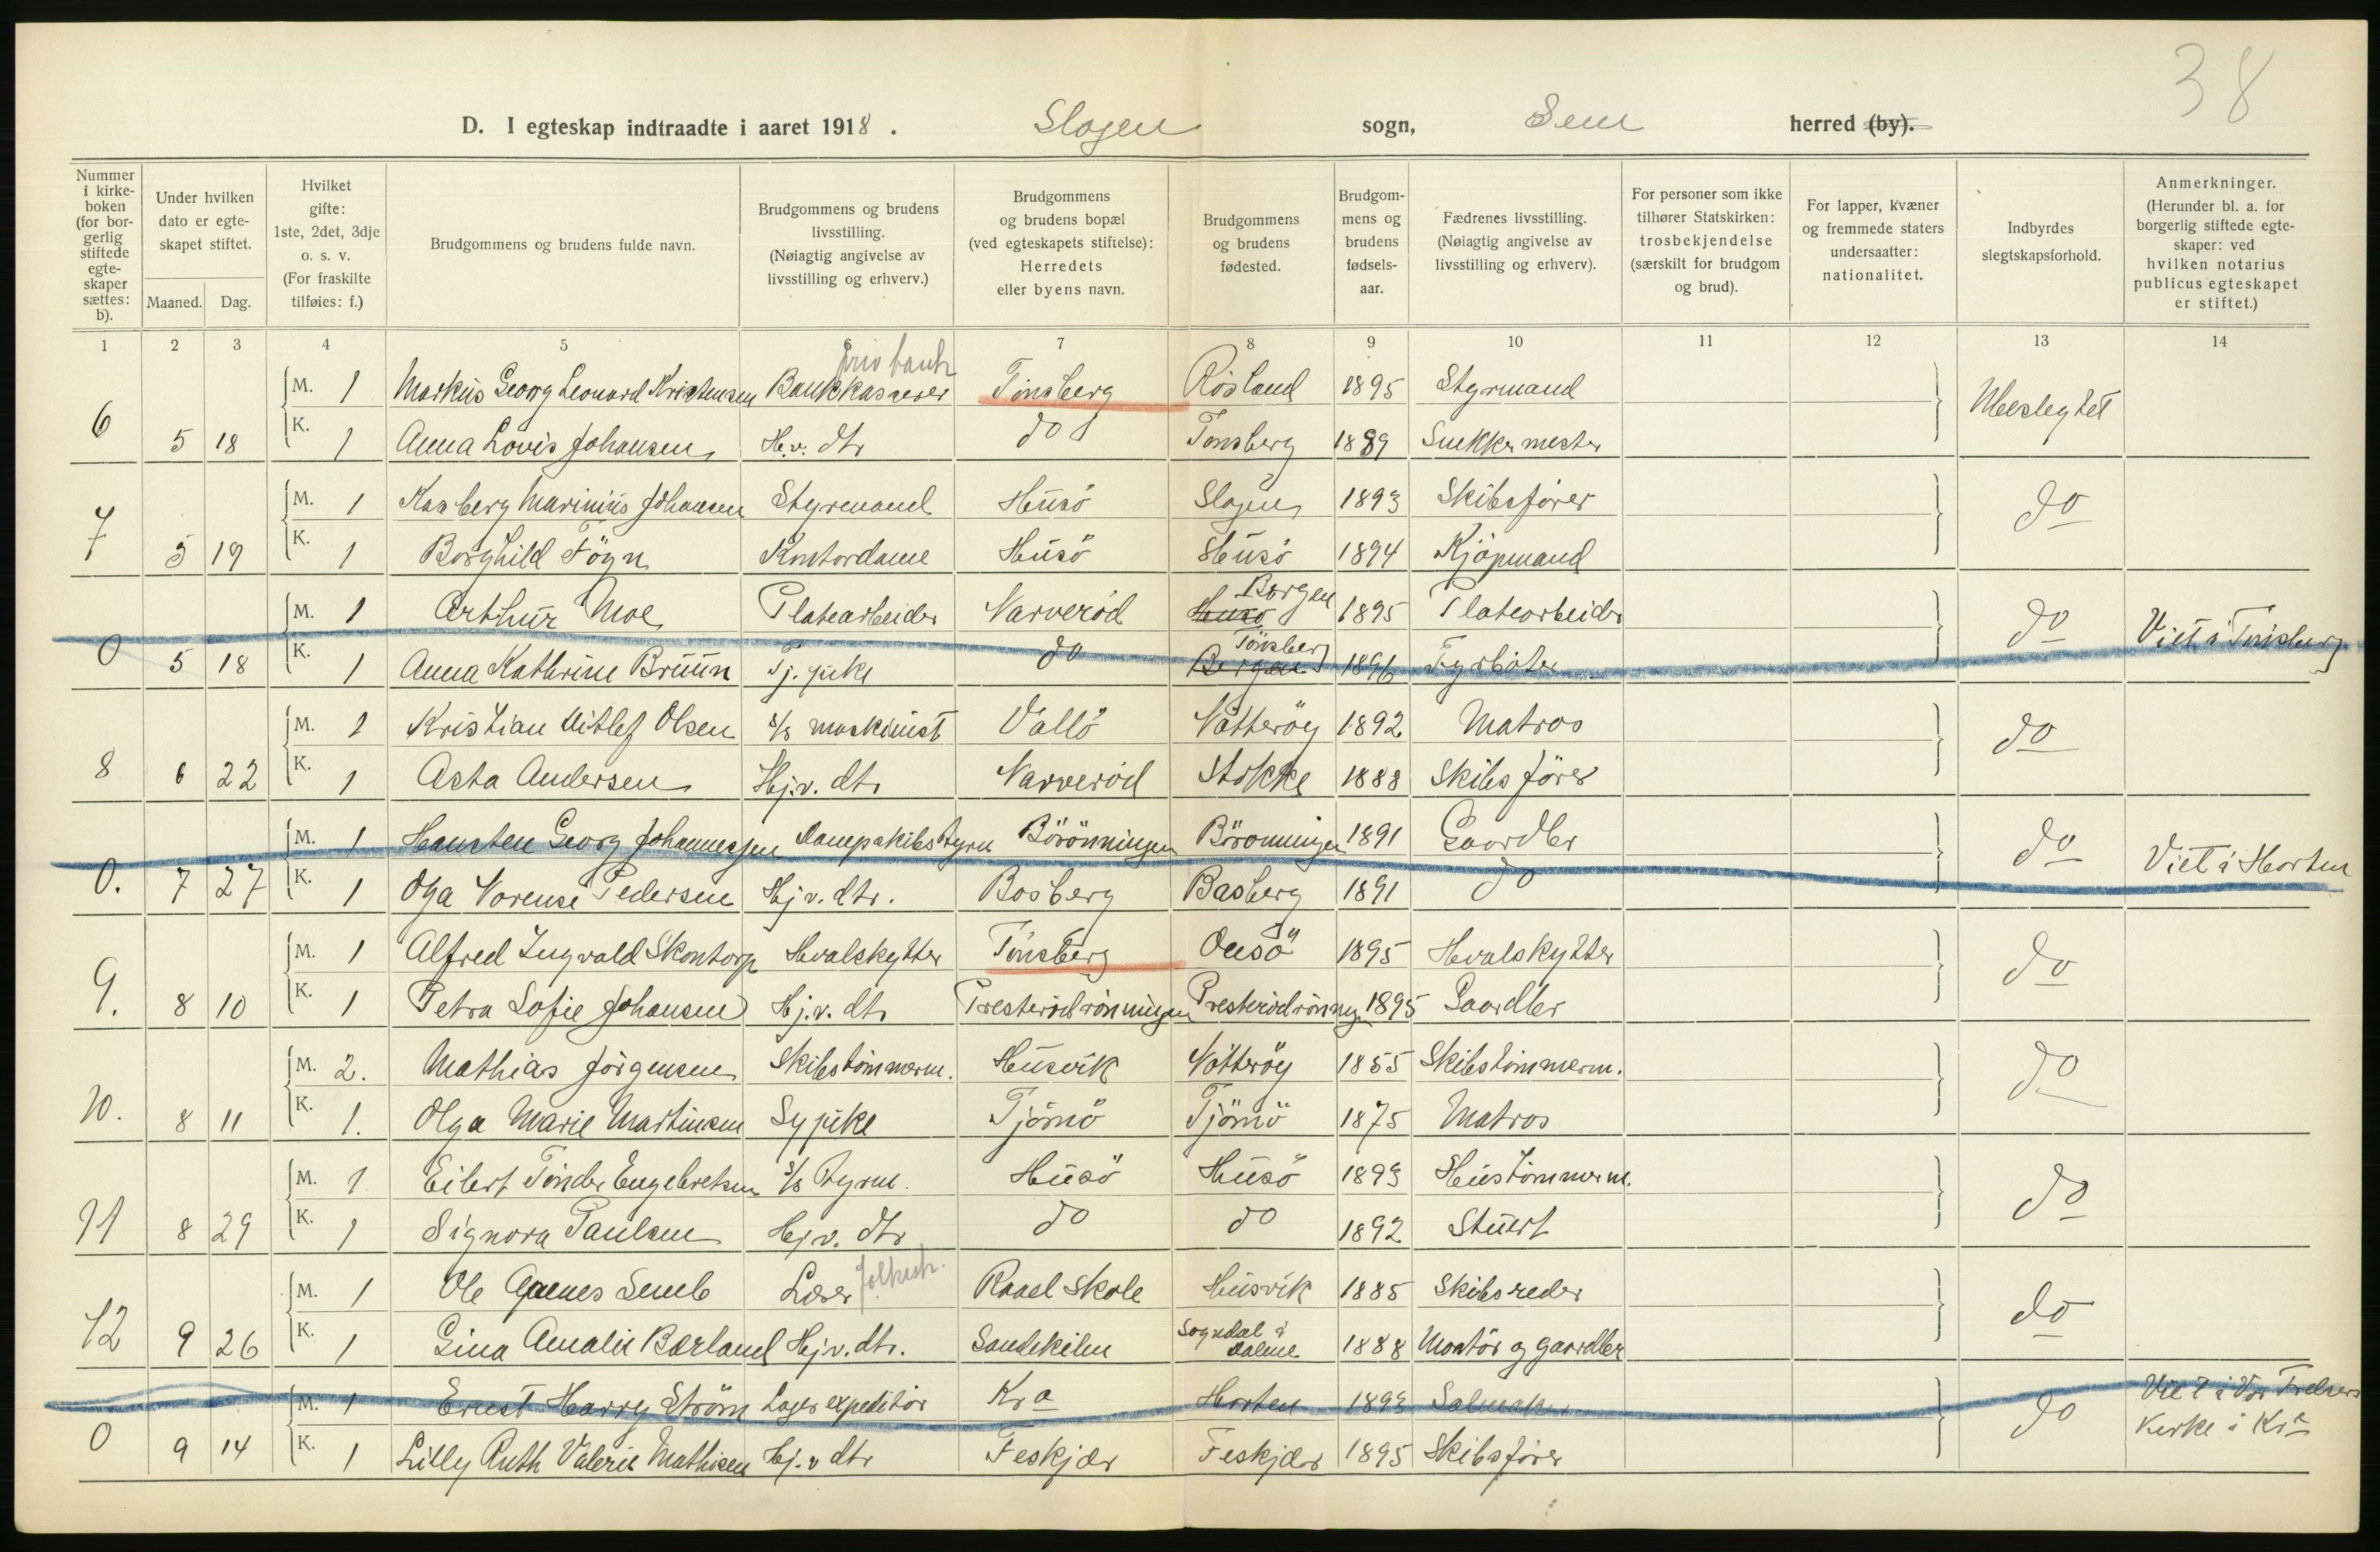 38
D. I egteskap indtraadte i aaret 1918. Slagen sogn, Sem herred (by).
Nummer i kirke-boken (for bor-gerlig stiftede egte-skaper sættes: b).
Under hvilken dato er egte-skapet stiftet.
Maaned. Dag.
Hvilket gifte: 1ste, 2det, 3dje o. s. v. (For fraskilte tilføies: f.)
Brudgommens og brudens fulde navn.
Brudgommens og brudens livsstilling. (Nøiagtig angivelse av livsstilling og erhverv.)
Brudgommens og brudens bopæl (ved egteskapets stiftelse): Herredets eller byens navn.
Brudgommens og brudens fødested.
Brudgom-mens og brudens fødsels-aar.
Fædrenes livsstilling. (Nøiagtig angivelse av livsstilling og erhverv).
For personer som ikke tilhører Statskirken: trosbekjendelse (særskilt for brudgom og brud).
For lapper, kvæner og fremmede staters undersaatter: nationalitet.
Indbyrdes slegtskapsforhold.
Anmerkninger. (Herunder bl. a. for borgerlig stiftede egte-skaper: ved hvilken notarius publicus egteskapet er stiftet.)
1 2 3 4 5 6 7 8 9 10 11 12 13 14
priv bank
M. 1 Markus Georg Leonard Kristensen Bankkasserer Tönsberg Rösland 1895 Styrmand Ubeslegtet
6 5 18 K. 1 Anna Lovis Johansen H.v. dtr do Tonsberg 1889 Snekkermester
M. 1 Karsberg Marinius Johansen Styrmand Husö Slagen 1893 Skibsfører do
7 5 19 K. 1 Borghild Föyn Kontordame Husö Husö 1894 Kjöpmand
M. 1 Arthur Moe Platearbeider Narveröd Husö Bergen 1895 Platearbeider do Viet i Tönsberg
0 5 18 K. 1 Anna Kathrine Bruun Tj. pike do Bergen Tönsberg 1896 Fyrböter
M. 1 Kristian Ditlef Olsen s/s maskinist Vallö Nötteröy 1892 Matros do
8 6 22 K. 1 Asta Andersen Hj.v. dtr Narveröd Stokke 1888 Skibsförer
M. 1 Hansten Georg Johannessen Dampskibsstyrm Börönningen Börönningen 1891 Gaardbr do Viet i Horten
0. 7 27 K. 1 Olga Norense Pedersen Hj.v. dtr. Basberg Basberg 1891 do
M. 1 Alfred Ingvald Skontorp Hvalskytter Tönsberg Onsöy 1895 Hvalskytter do
9. 8 10 K. 1 Petra Sofie Johansen Hj.v. dtr Presterödrönningen Presterödrönng 1895 Gaardbr
M. 2. Mathias Jörgensen Skibstömmerm. Husvik Nötteröy 1855 Skibstömmerm. do
10. 8 11 K. 1. Olga Marie Martinsen Sypike Tjömö Tjömö 1875 Matros
M. 1 Eilert Tönder Engebretsen s/s styrm. Husö Husö 1893 Hustömmerm. do
11 8 29 K. 1 Signora Paulsen Hj.v. dtr do do 1892 Stuert
M. 1 Ole Agnenes Semb Lærer folkesk. Raael Skole Husvik 1885 Skibsreder do
12 9 26 K. 1 Gina Amalie Bærland Hj.v. dtr. Sandekilen Sogndal i Dalene 1888 Montör og gaardbr
M. 1 Ernst Harry Ström Lagerexpeditör Kra Horten 1893 Salmak. do Viet i Vor Frelsers Kirke i Kra
0 9 14 K. 1 Lilly Ruth Valerie Mathisen Hj.v dtr Feskjær Feskjær 1895 Skibsfører